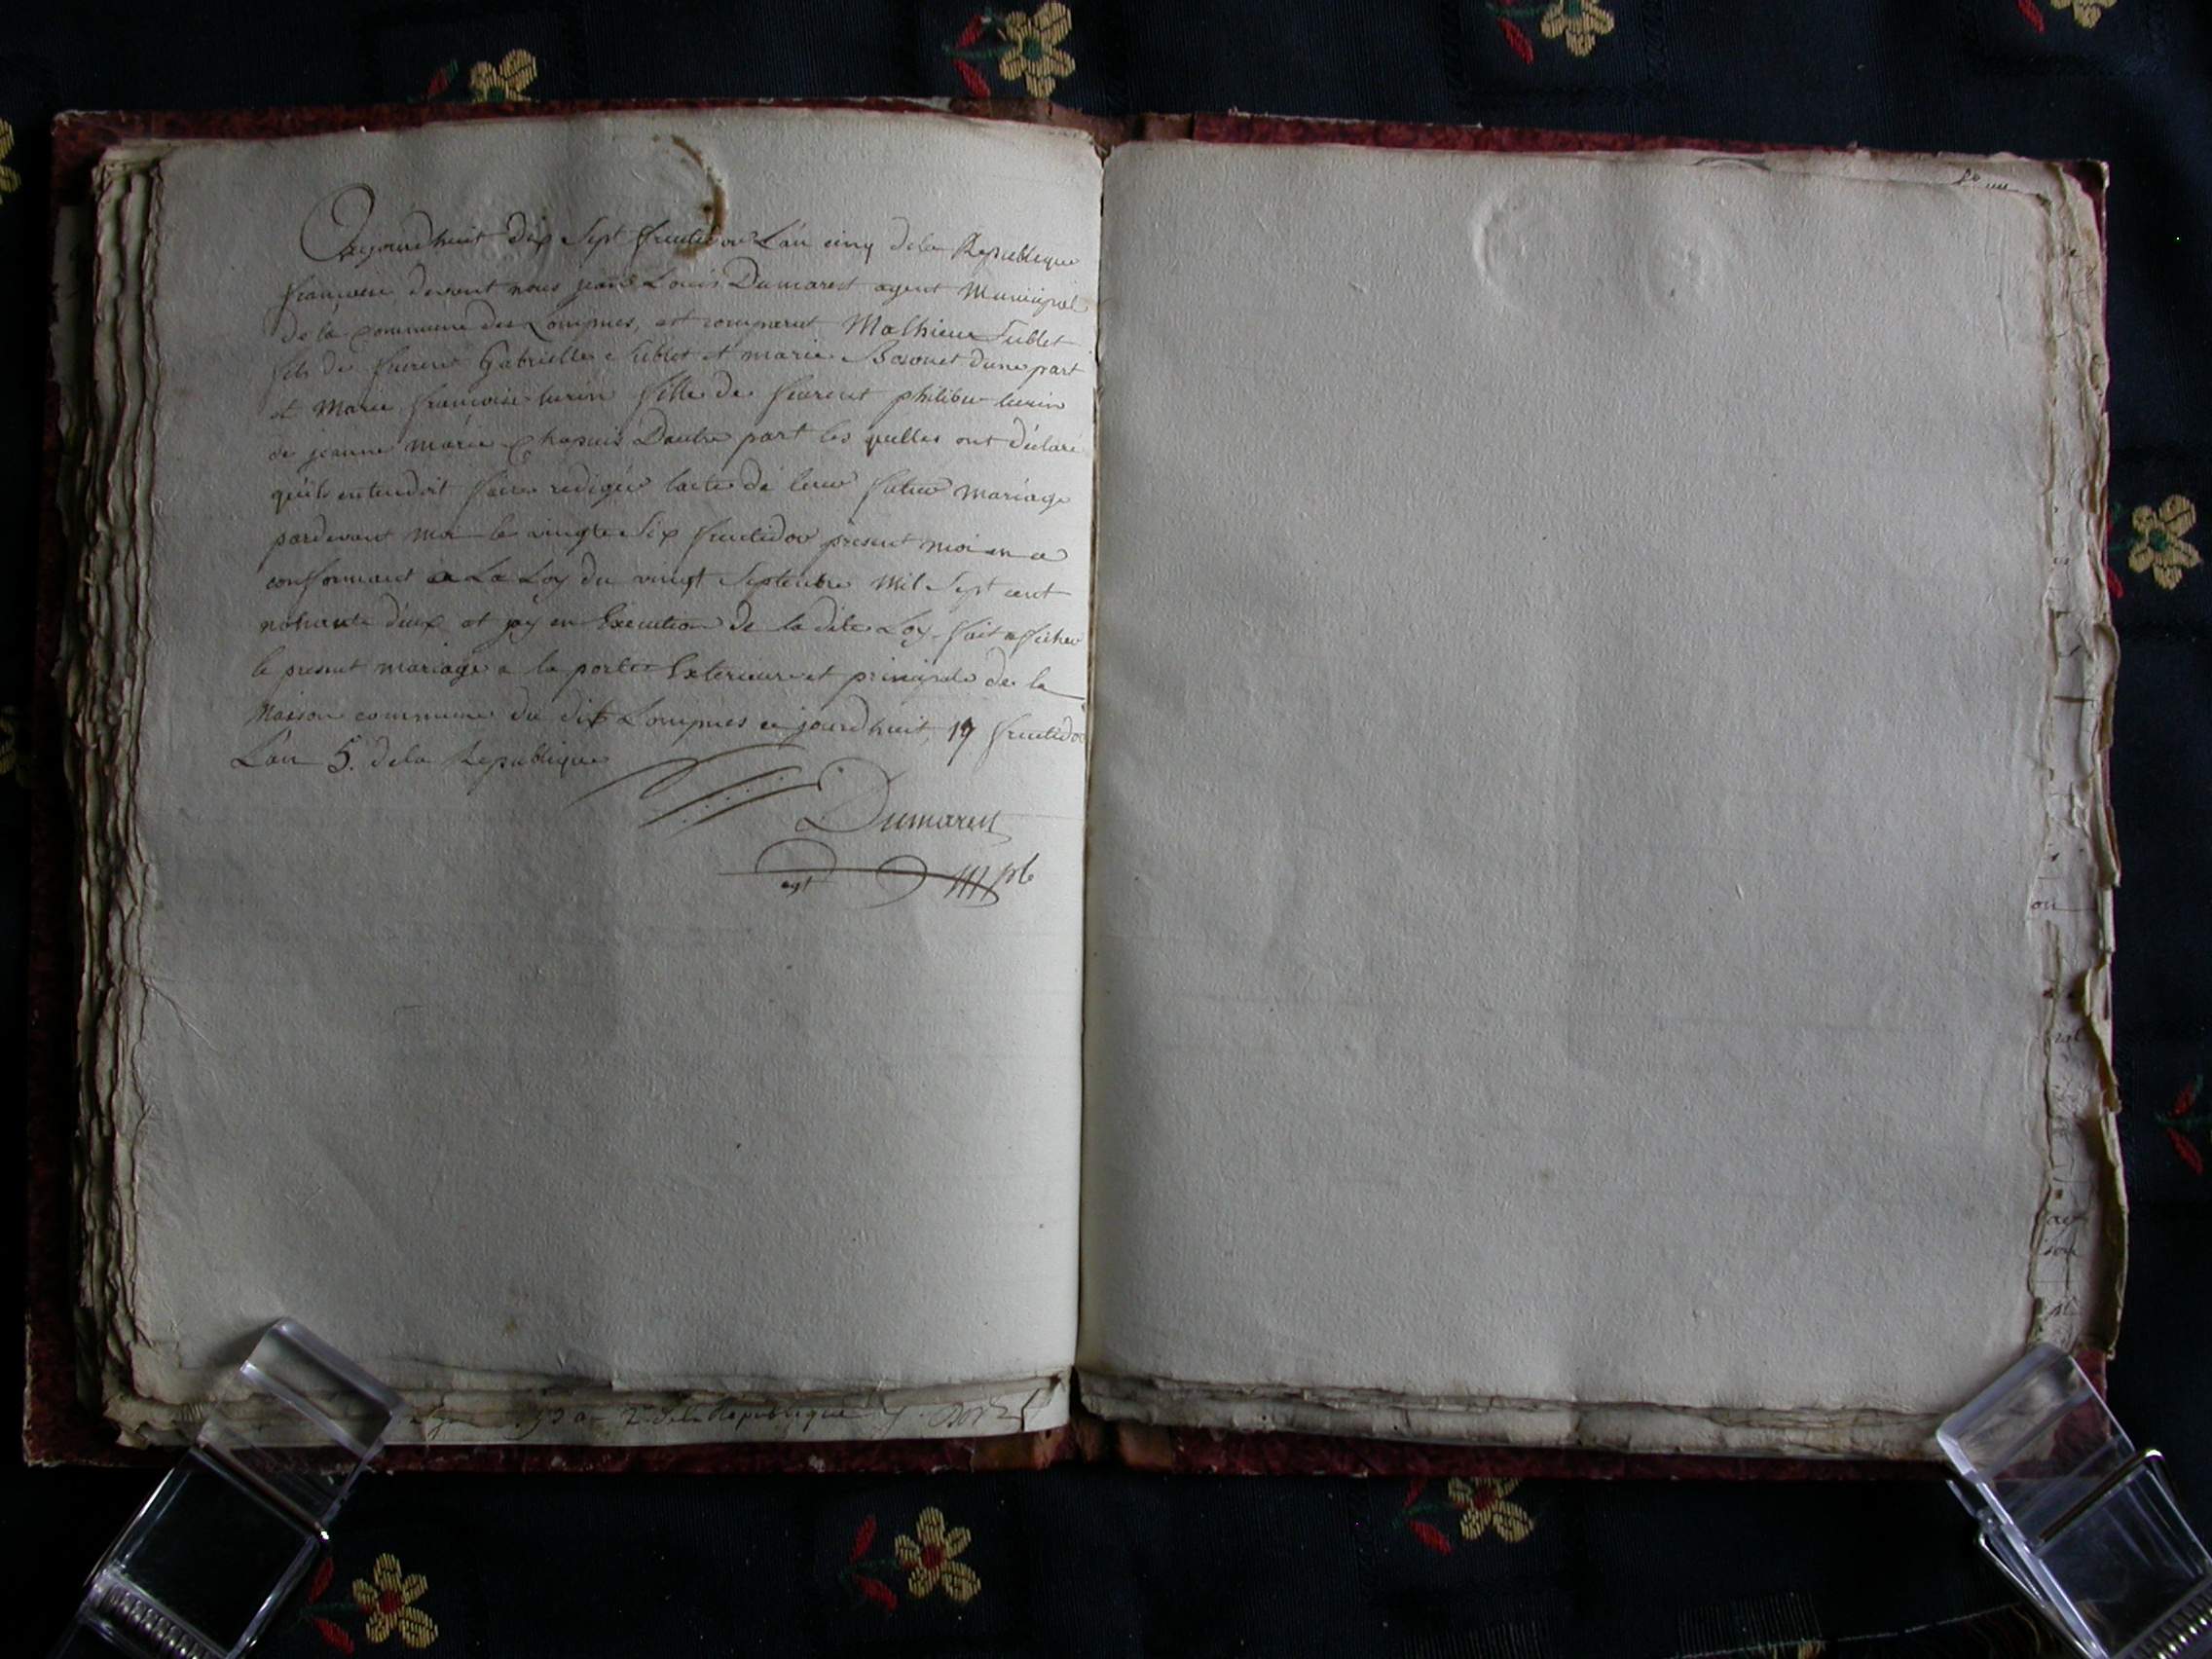 Aujourdhuit dix Sept fructidor L'an cinq dela Republique
francoise, devent nous jean Louis Dumarest agent Municipal
de la commune des Lompnes, est comparut Mathieu Sublet
fils de Gabrielle Sublet et marie Bozonet dune part
et Marie francoise lurin fille de philiber lurin
de jeanne marie Chapuis Dautre part les quelles ont déclaré
qu'ils entendoit faire redigér lacte de leur futur mariage
pardevant moi le vingte Six fructidor present moi en a
conformant a La Loy du vingt Septembre Mil Sept cent
nonante deux et jay en Execution de la dite Loy fait afficher
le present mariage a la porte Exterieure et principale de la
Maison commune du dit Lompnes ce jourdhuit, 17 fructidor
L'an 5. dela Republique
Dumarest
agt mple
2e dela Republique
on